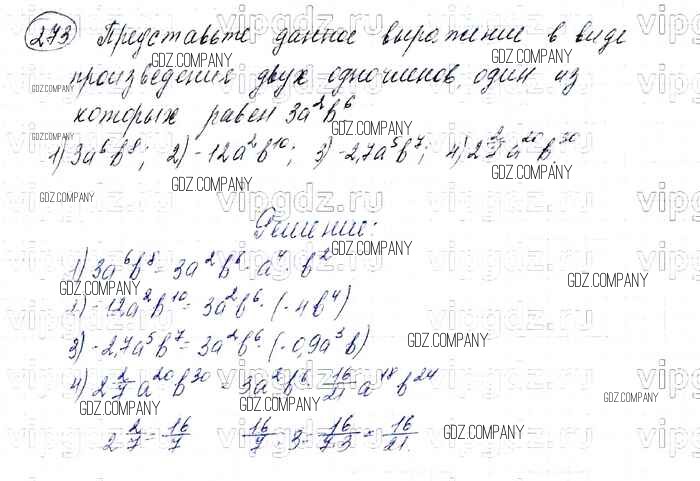 273 Представьте данное выражение в виде
произведения двух одночленов, один из
которых равен 3a²b⁶
1) 3a⁶b⁸; 2) -12a²b¹⁰; 3) -2,7a⁵b⁷; 4) 2 2/7 a²⁰b³⁰
Решение:
1) 3a⁶b⁸ = 3a²b⁶ · a⁴ · b²
2) -12a²b¹⁰ = 3a²b⁶ · (-4b⁴)
3) -2,7a⁵b⁷ = 3a²b⁶ · (-0,9a³b)
4) 2 2/7 a²⁰b³⁰ = 3a²b⁶ · 16/21 a¹⁸b²⁴
2 2/7 = 16/7 16/7 : 3 = 16/7·3 = 16/21.
GDZ.COMPANY
vipgdz.ru